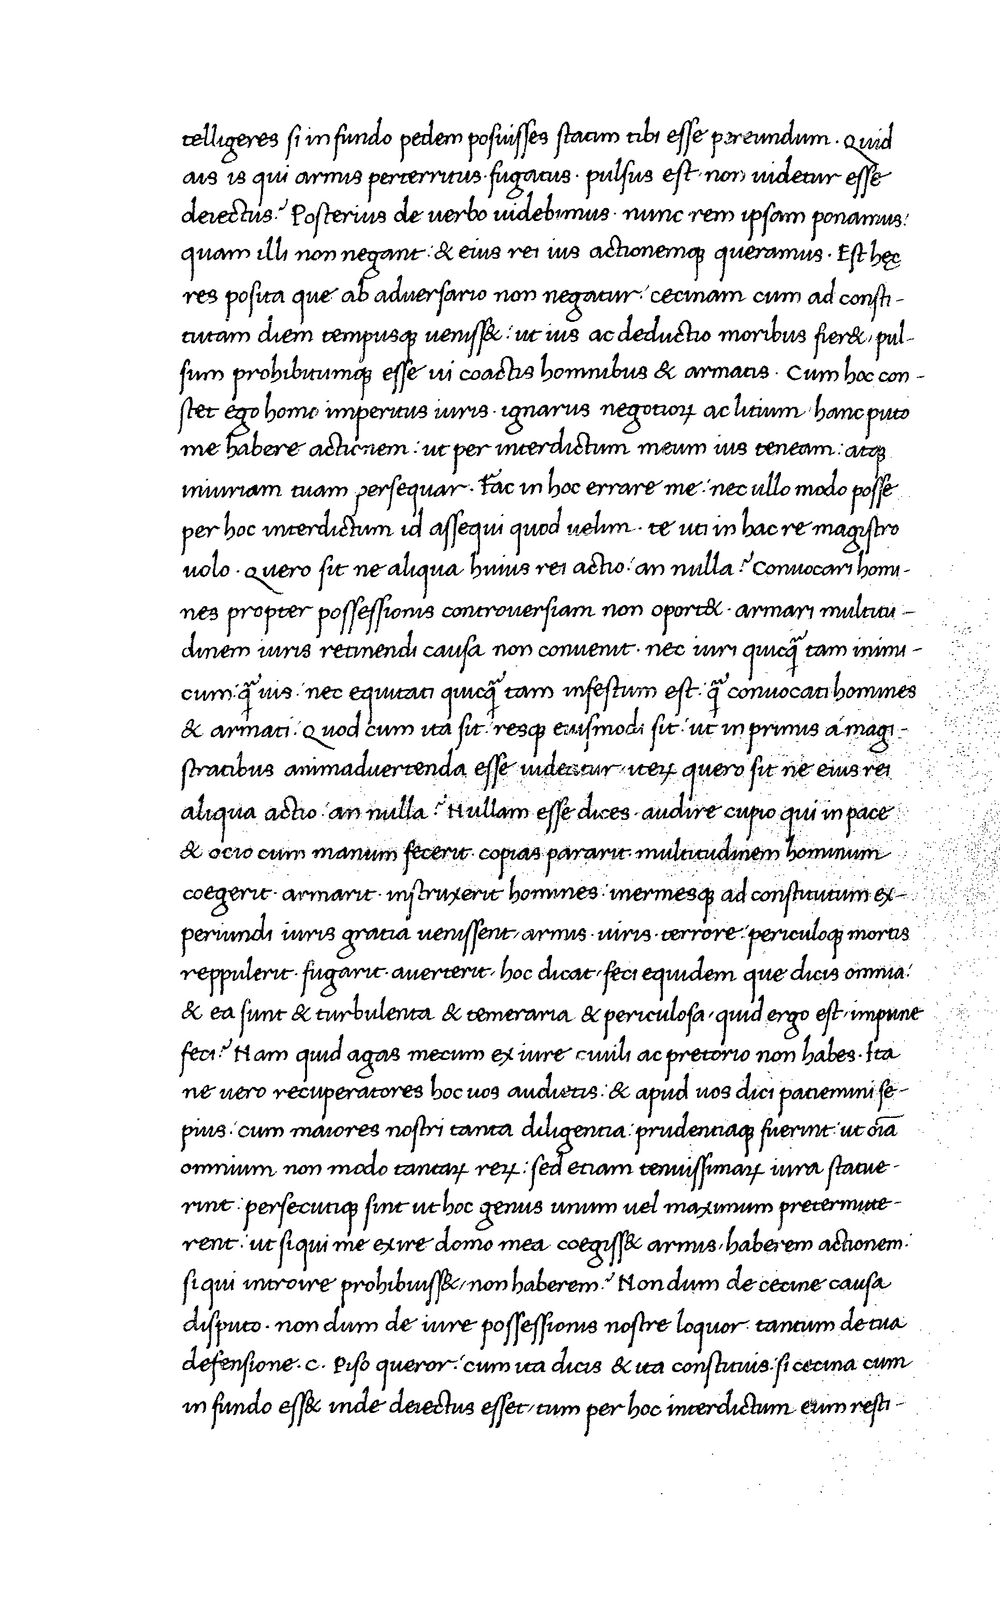 telligeres si in fundo pedem posuisses statim tibi esse pereundum · Quid
ais is qui armis perterritus · fugatus · pulsus est · non uidetur esse
deiectus? Posterius de uerbo uidebimus · nunc rem ipsam ponamus:
quam illi non negant : & eius rei ius actionemqꝫ queramus · Est hęc
res posita que ab aduersario non negatur : cecinam cum ad consti-
tutam diem tempusqꝫ ueniss& : ut ius ac deductio moribus fier& , pul-
sum prohibitumqꝫ esse ui coactis hominibus & armatis · Cum hoc con-
stet ego homo imperitus iuris · ignarus negotioꝝ ac litium · hanc puto
me habere actionem : ut per interdictum meum ius teneam : atqꝫ
iniuriam tuam persequar · Fac in hoc errare me : nec ullo modo posse
per hoc interdictum id assequi quod uelim · te uti in hac re magistro
uolo · Quero sit ne aliqua huius rei actio : an nulla? Conuocari homi-
nes propter possessionis controuersiam non oport& · armari multitu-
dinem iuris retinendi causa non conuenit · nec iuri quicꝗ̃ tam inimi-
cum : ꝗ̃ uis · nec equitati quicꝗ̃ tam infestum est : ꝗ̃ conuocati homines
& armati : Quod cum ita sit : resqꝫ eiusmodi sit : ut in primis a magi-
stratibus animaduertenda esse uideatur , iteꝝ quero sit ne eius rei
aliqua actio : an nulla? Nullam esse dices · audire cupio qui in pace
& ocio cum manum fecerit · copias pararit · multitudinem hominum
coegerit · armarit · instruxerit homines : inermesqꝫ ad constitutum ex-
periundi iuris gratia uenissent , armis · uiris · terrore : periculoqꝫ mortis
reppulerit · fugarit · auerterit , hoc dicat , feci equidem que dicis omnia:
& ea sunt & turbulenta & temeraria & periculosa , quid ergo est , impune
feci? Nam quid agas mecum ex iure ciuili ac pretorio non habes · Ita
ne uero recuperatores hoc uos audietis : & apud uos dici patiemini se-
pius : cum maiores nostri tanta diligentia : prudentiaqꝫ fuerint : ut oı̅a
omnium non modo tantaꝝ reꝝ : sed etiam tenuissimaꝝ iura statue-
rint : persecutiqꝫ sint ut hoc genus unum uel maximum pretermitte-
rent : ut si qui me exire domo mea coegiss& armis , haberem actionem :
si qui introire prohibuiss& , non haberem? Non dum de cecine causa
disputo · non dum de iure possessionis nostre loquor · tantum de tua
defensione · C · Piso queror : cum ita dicis & ita constituis : si cecina cum
in fundo ess& inde deiectus esset , tum per hoc interdictum eum resti-